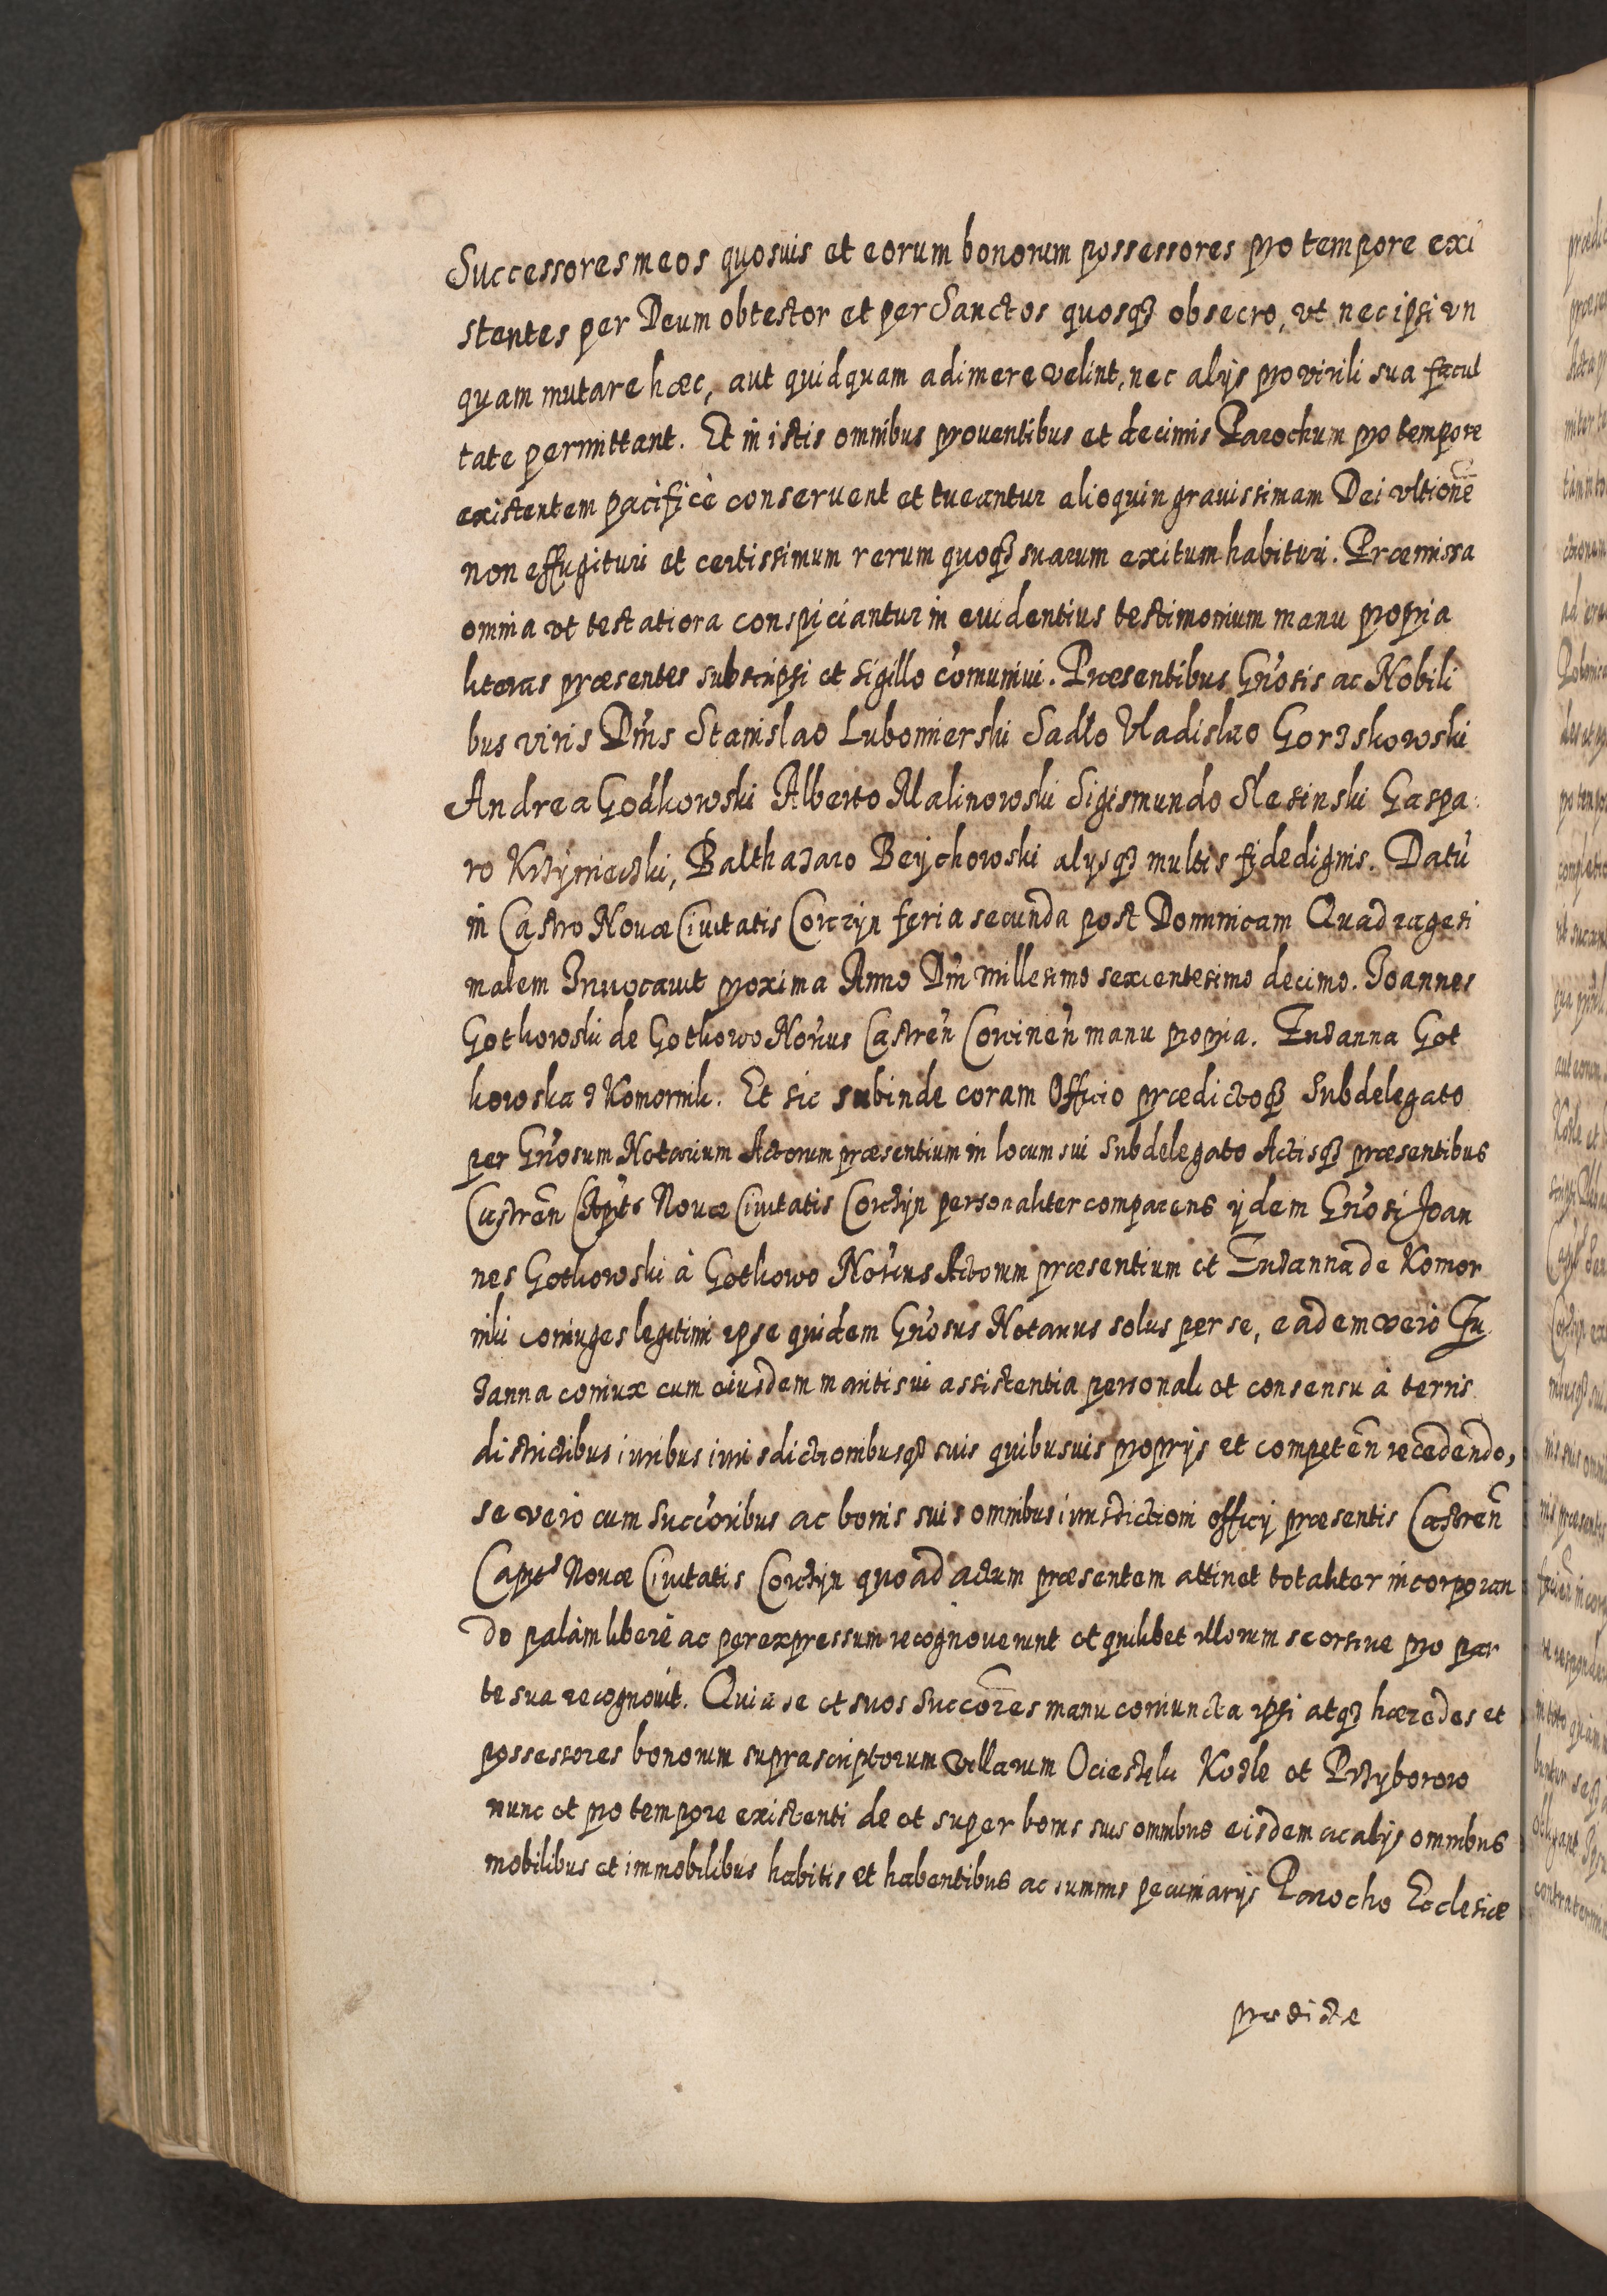 Successores meos quosuis et eorum bonorum possessores pro tempore exi
stentes per Deum obtestor et per Sanctos quosqȝ obsecro, vt nec ipsi vn
quam mutare hæc, aut quidquam adimere velint, nec alijs pro virili sua facul
tate permittant. Et in istis omnibus prouentibus et decimis Parochum pro tempore
existentem pacificè conseruent et tueantur alioquin grauissimam Dei vltionē
non effugituri et certissimum rerum quoqȝ suarum exitum habituri. Præmissa
omnia vt testatiora conspiciantur in euidentius testimonium manu propria
literas præsentes subscripsi et sigillo com̃uniui. Præsentibus Gñosis ac Nobili
bus viris Dñis Stanislao Lubomierski Sadło Vladislao Gorzskowski
Andrea Godkowski Alberto Malinowski Sigismundo Slesinski Gaspa
ro Krzÿmieczki, Balthazaro Beÿchowski alijsqȝ multis fidedignis. Datū
in Castro Nouæ Ciuitatis Corczyn feria secunda post Dominicam Quadragesi
malem Inuocauit proxima Anno Dñi millesimo sexcentesimo decimo. Joannes
Gotkowski de Gotkowo Not̃ius Castreñ Corcineñ manu propria. Zuzanna Got
kowska z Komornik. Et sic subinde coram Officio prædictoqȝ Subdelegato
per Gñosum Notarium Actorum præsentium in locum sui Subdelegato Actisqȝ præsentibus
Castreñ Cap̃ts Nouæ Ciuitatis Corczÿn personaliter comparens ijdem Gñosi Joan
nes Gotkowski à Gotkowo Not̃ius Actorum præsentium et Zuzanna de Komor
niki coniuges legitimi ipse quidem Gñosus Notarius solus per se, eadem verò Zu
zanna coniux cum eiusdem mariti sui assistentia personali et consensu à terris
districtibus iuribus iurisdictionibusqȝ suis quibusuis proprijs et competeñ recedendo,
se verò cum Succ̃oribus ac bonis suis omnibus iurisdictioni officij præsentis Castreñ
Capit̃s Nouæ Ciuitatis Corczÿn quoad actum præsentem attinet totaliter incorporan
do palàm liberè ac per expressum recognouerunt et quilibet illorum seorsiue pro par
te sua recognouit. Quia se et suos Succ̃ores manu coniuncta ipsi atqȝ hæredes et
possessores bonorum suprascriptorum villarum Ociesęki Kozle et Przÿborow
nunc et pro tempore existenti de et super bonis suis omnibus eisdem ac alijs omnibus
mobilibus et immobilibus habitis et habentibus ac summis pecuniarijs Parocho Ecclesiæ
prædictæ